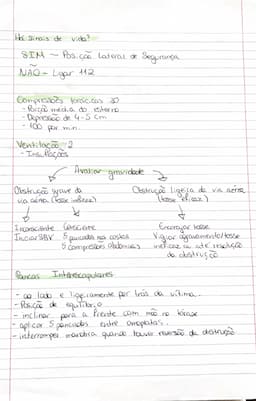 Há sinais de vida?
SIM - Posição Lateral de Segurança
NÃO - Ligar 112
Compressões torácicas 30
- Porção média do esterno
- Depressão de 4-5 cm
- 100 por min.
Ventilação 2
- Insuflações
Avaliar gravidade
Obstrução grave da via aérea (tosse ineficaz)
Obstrução ligeira da via aérea (tosse eficaz)
Inconsciente
Iniciar SBV
Consciente
5 pancadas nas costas
5 compressões Abdominais
Encorajar tosse
Vigiar agravamento/tosse
ineficaz ou até resolução
da obstrução
Pancas Interescapulares
- ao lado e ligeiramente por trás da vítima.
- Posição de equilíbrio
- inclinar para a frente com mão no tórax
- aplicar 5 pancadas entre omoplatas.
- interromper manobra quando houver reversão da obstrução